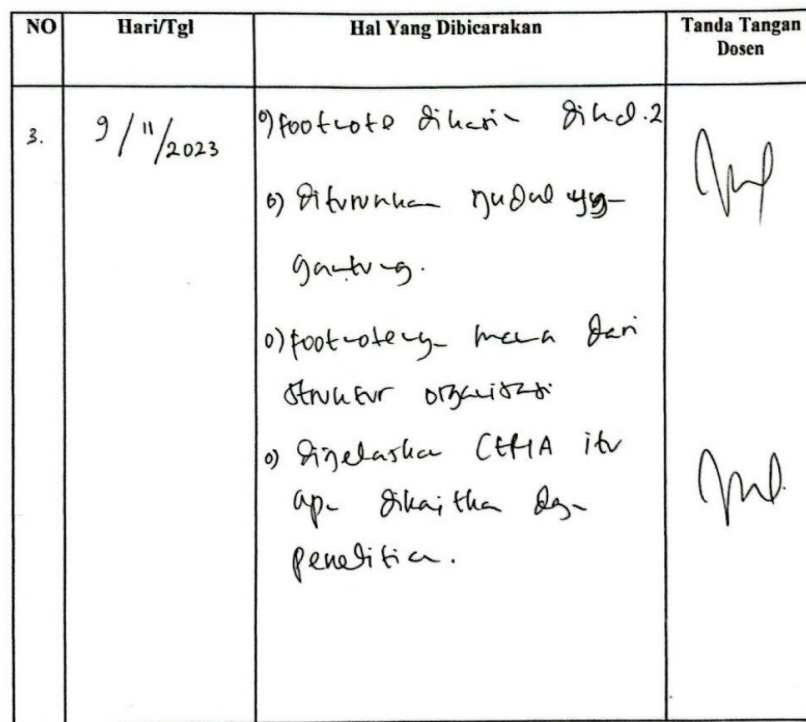 NO Hari/Tgl Hal Yang Dibicarakan Tanda Tangan
Dosen
3. 9/11/2023 o) footnote dikasih dihal.2
o) diturunkan judul yg
gantung.
o) footnotenya mana dari
struktur organisasi
o) dijelaskan itu
apa dikaitkan dgn
penelitian.